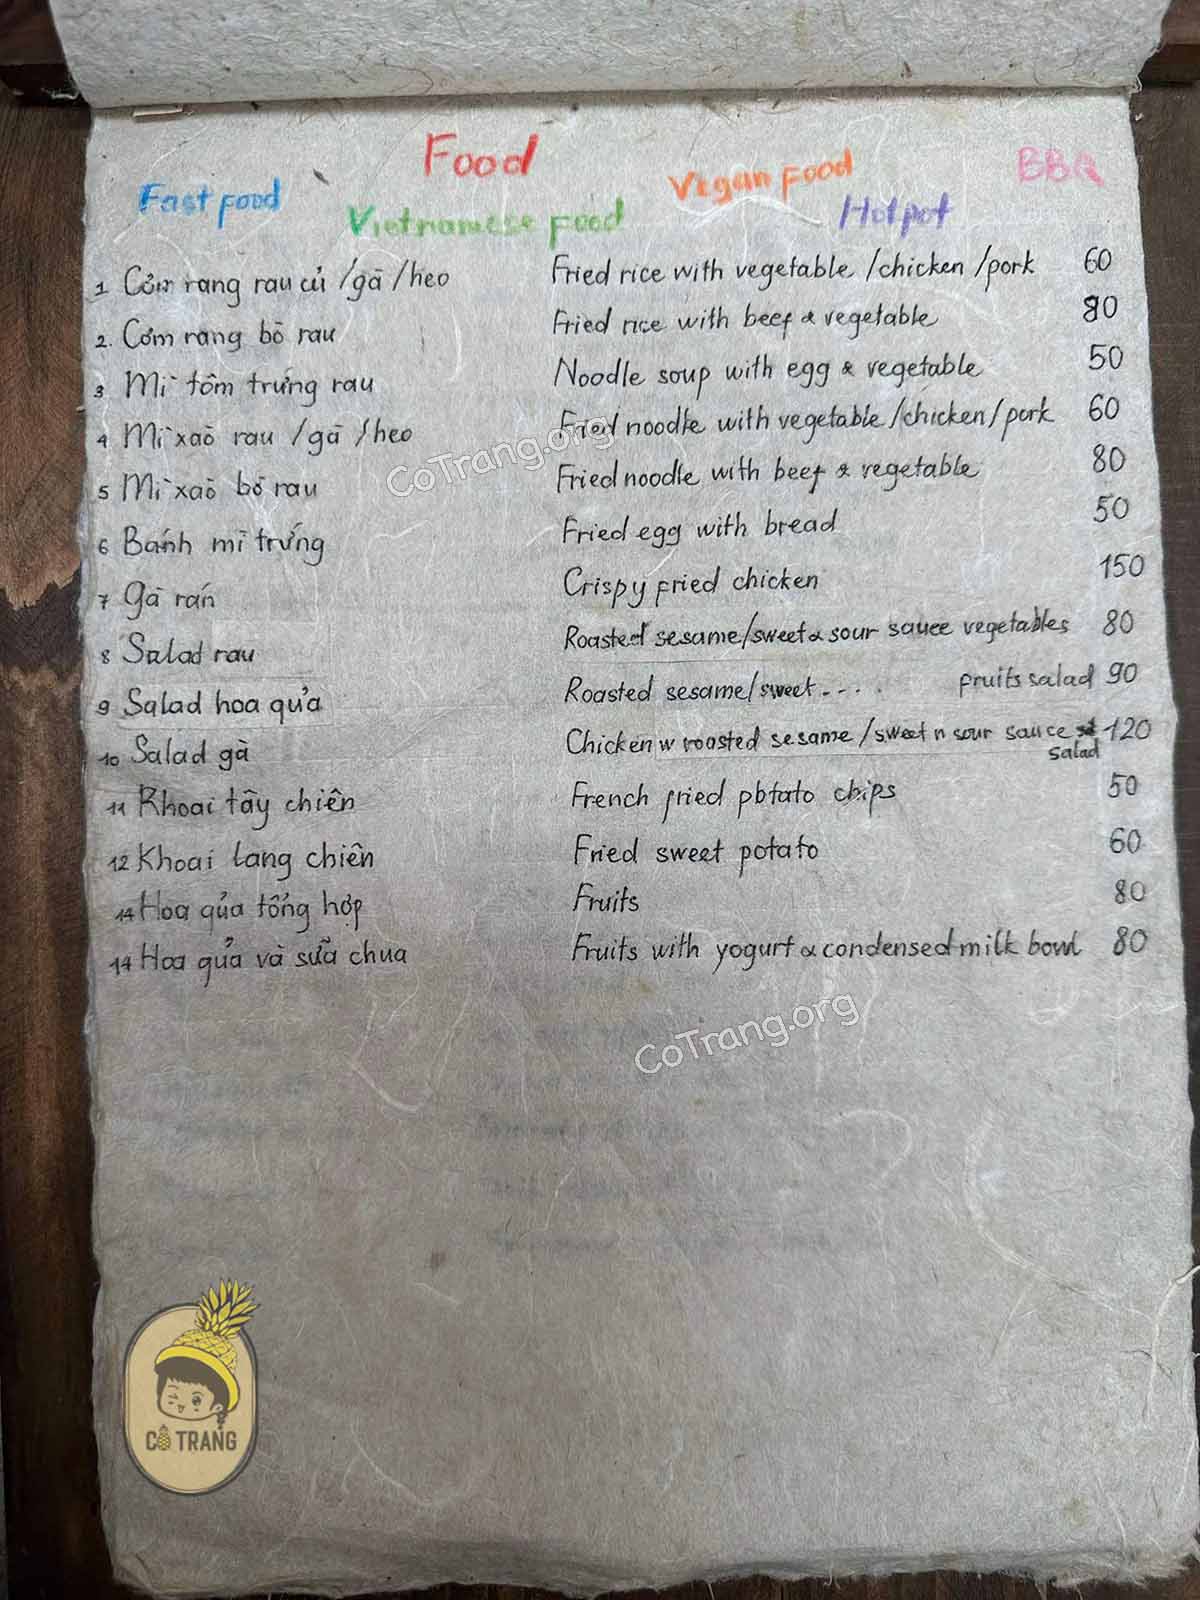 Food
Fast food Vietnamese food Vegan food Hotpot BBQ
1 Cơm rang rau củ /gà /heo Fried rice with vegetable /chicken /pork 60
2. Cơm rang bò rau Fried rice with beef & vegetable 80
3 Mì tôm trứng rau Noodle soup with egg & vegetable 50
4 Mì xào rau /gà /heo Fried noodle with vegetable /chicken/pork 60
5 Mì xào bò rau Fried noodle with beef & vegetable 80
6 Bánh mì trứng Fried egg with bread 50
7 Gà rán Crispy fried chicken 150
8 Salad rau Roasted sesame/sweet & sour sauce vegetables 80
9 Salad hoa quả Roasted sesame/sweet .... fruits salad 90
10 Salad gà Chicken w roasted sesame /sweet n sour sauce 120
salad
11 Khoai tây chiên French fried potato chips 50
12 Khoai lang chiên Fried sweet potato 60
14 Hoa quả tổng hợp Fruits 80
14 Hoa quả và sữa chua Fruits with yogurt & condensed milk bowl 80
CoTrang.org
CoTrang.org
CÔ TRANG